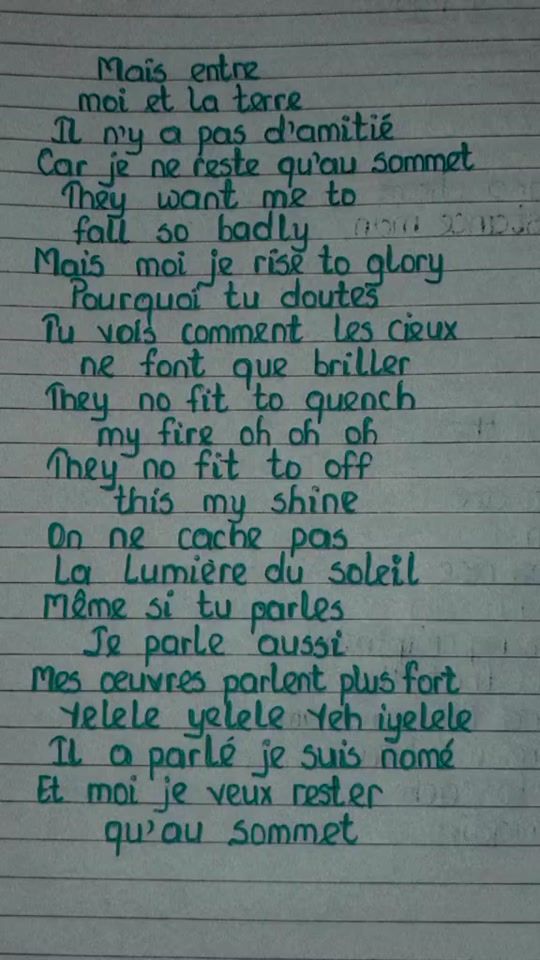 Mais entre
moi et la terre
Il n'y a pas d'amitié
Car je ne reste qu'au sommet
They want me to
fall so badly
Mais moi je rise to glory
Pourquoi tu doutes
Tu vois comment les cieux
ne font que briller
They no fit to quench
my fire oh oh oh
They no fit to off
this my shine
On ne cache pas
La Lumière du soleil
Même si tu parles
Je parle aussi
Mes œuvres parlent plus fort
Yelele yelele Yeh iyelele
Il a parlé je suis nomé
Et moi je veux rester
qu'au sommet